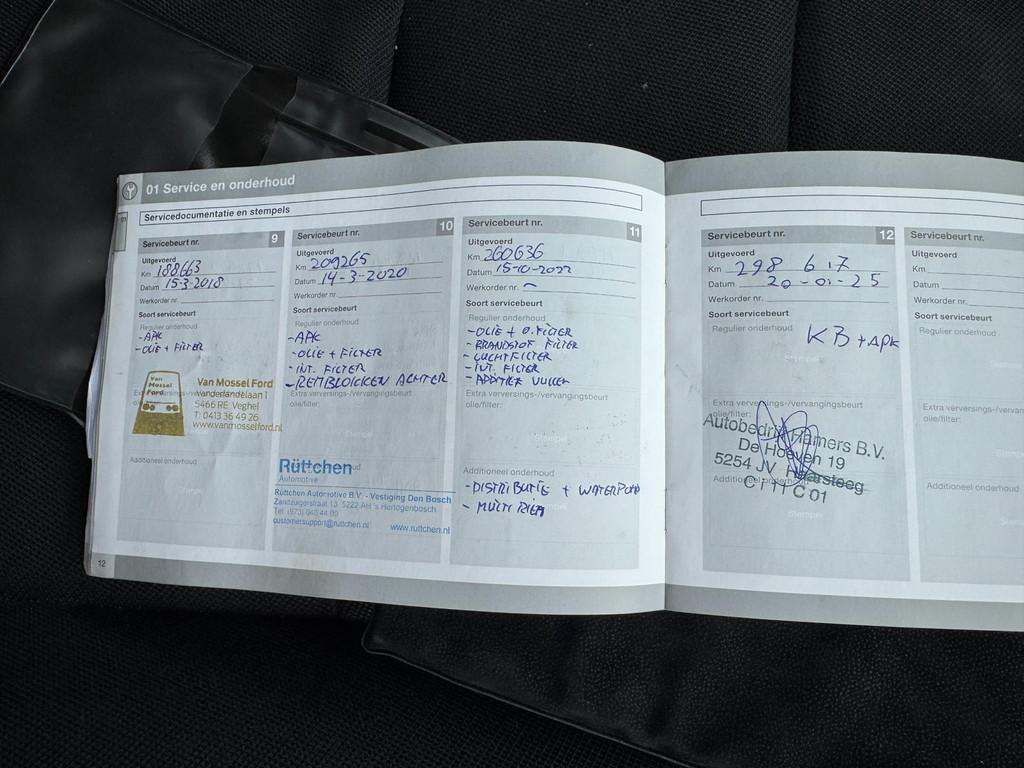 01 Service en onderhoud
Servicedocumentatie en stempels
Servicebeurt nr. 9
Uitgevoerd
Km 188663
Datum 15-3-2018
Werkorder nr.
Soort servicebeurt
Regulier onderhoud
- APK
- OLIE + FILTER
Van Mossel Ford
Van Mossel Ford
Vanderlandelaan 1
5466 RE Veghel
T: 0413 36 49 26
www.vanmosselford.nl
Additioneel onderhoud
Stempel
Servicebeurt nr. 10
Uitgevoerd
Km 209265
Datum 14-3-2020
Werkorder nr.
Soort servicebeurt
Regulier onderhoud
- APK
- OLIE + FILTER
- INT. FILTER
- REMBLOKKEN ACHTER
Extra verversings-/vervangingsbeurt
olie/filter:
Rüttchen
Automotive
Rüttchen Automotive B.V. - Vestiging Den Bosch
Zandzuigerstraat 13 5222 AH 's Hertogenbosch
customersupport@ruttchen.nl www.ruttchen.nl
Servicebeurt nr. 11
Uitgevoerd
Km 260636
Datum 15-10-2022
Werkorder nr. ~
Soort servicebeurt
Regulier onderhoud
- OLIE + O.FILTER
- BRANDSTOF FILTER
- LUCHTFILTER
- INT. FILTER
- ADDITIEF VULLEN
Extra verversings-/vervangingsbeurt
olie/filter:
Stempel
Additioneel onderhoud
- DISTRIBUTIE + WATERPOMP
- MULTI RIEM
12
Servicebeurt nr. 12
Uitgevoerd
Km 298 617
Datum 20-01-25
Werkorder nr.
Soort servicebeurt
Regulier onderhoud
KB + APK
Stempel
Extra verversings-/vervangingsbeurt
olie/filter:
Autobedrijf Hamers B.V.
De Hoeven 19
5254 JV Haarsteeg
Additioneel onderhoud
Stempel
Servicebeurt nr.
Uitgevoerd
Km
Datum
Werkorder nr.
Soort servicebeurt
Regulier onderhoud
Extra verversings-/vervan
olie/filter:
Additioneel onderhoud